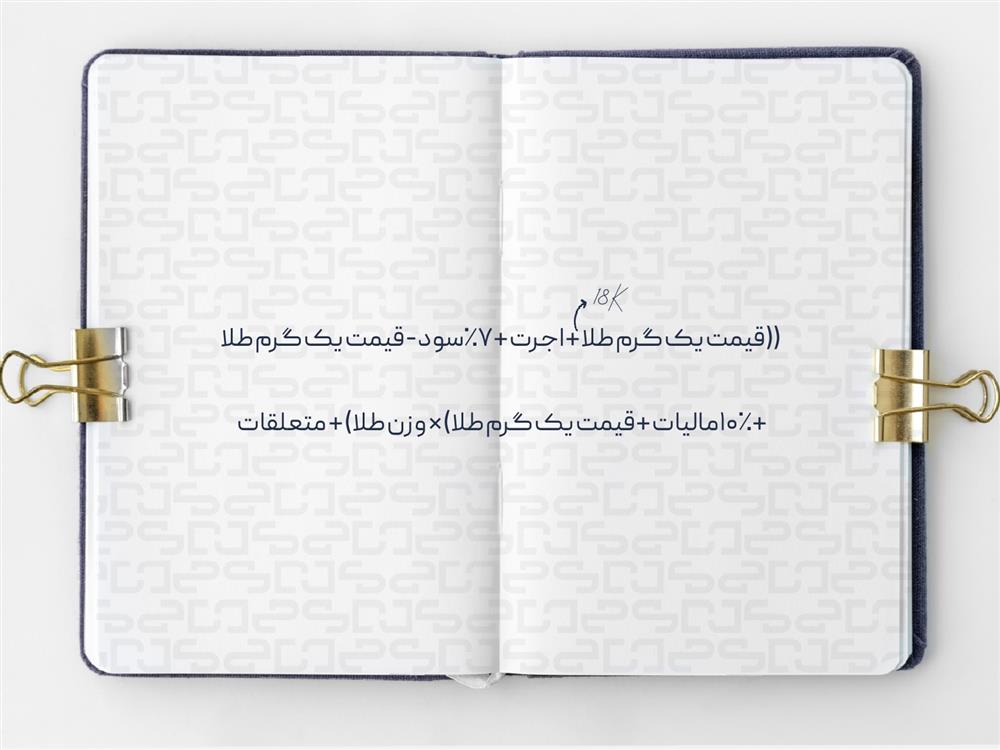 18K
((قیمت یک گرم طلا+اجرت+۷٪سود-قیمت یک گرم طلا
+۱۰٪مالیات+قیمت یک گرم طلا)×وزن طلا)+متعلقات